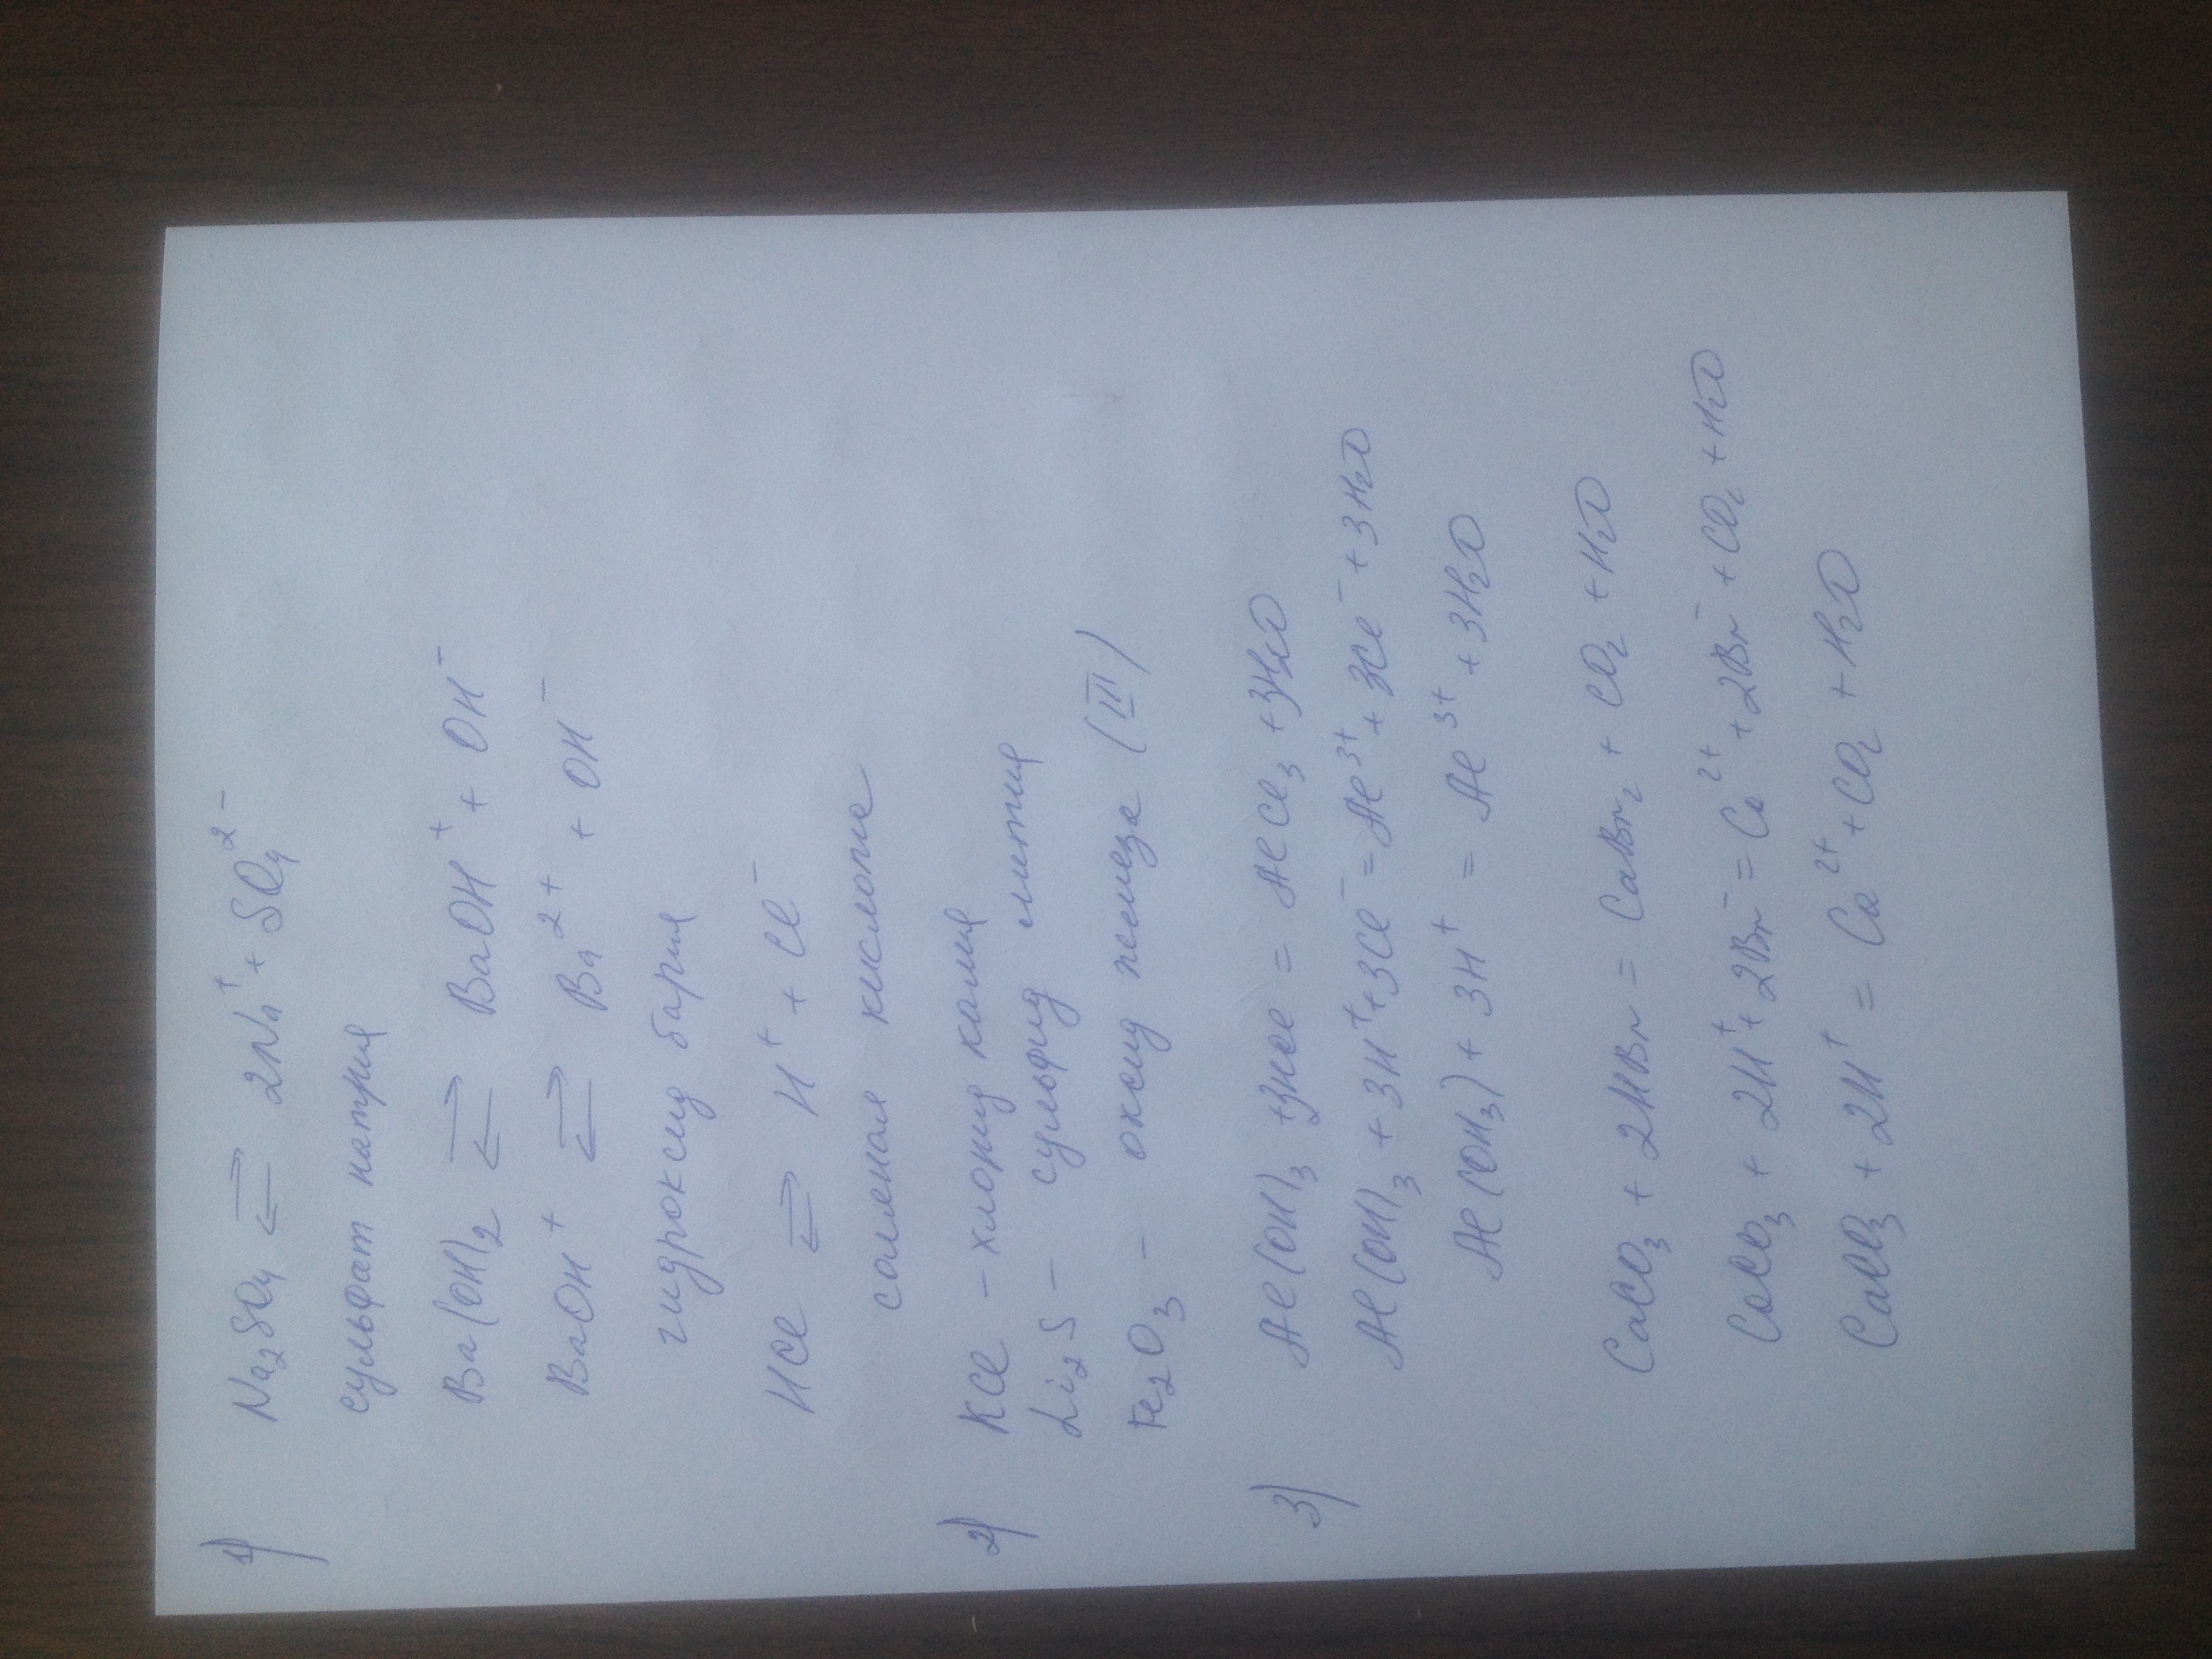 1) Na₂SO₄ ⇄ 2Na⁺ + SO₄²⁻
сульфат натрия
Ba(OH)₂ ⇄ BaOH⁺ + OH⁻
BaOH⁺ ⇄ Ba²⁺ + OH⁻
гидроксид бария
HCl ⇄ H⁺ + Cl⁻
соляная кислота
2) KCl – хлорид калия
Li₂S – сульфид лития
Fe₂O₃ – оксид железа (III)
3) Al(OH)₃ + 3HCl = AlCl₃ + 3H₂O
Al(OH)₃ + 3H⁺ + 3Cl⁻ = Al³⁺ + 3Cl⁻ + 3H₂O
Al(OH₃) + 3H⁺ = Al³⁺ + 3H₂O
CaCO₃ + 2HBr = CaBr₂ + CO₂ + H₂O
CaCO₃ + 2H⁺ + 2Br⁻ = Ca²⁺ + 2Br⁻ + CO₂ + H₂O
CaCO₃ + 2H⁺ = Ca²⁺ + CO₂ + H₂O